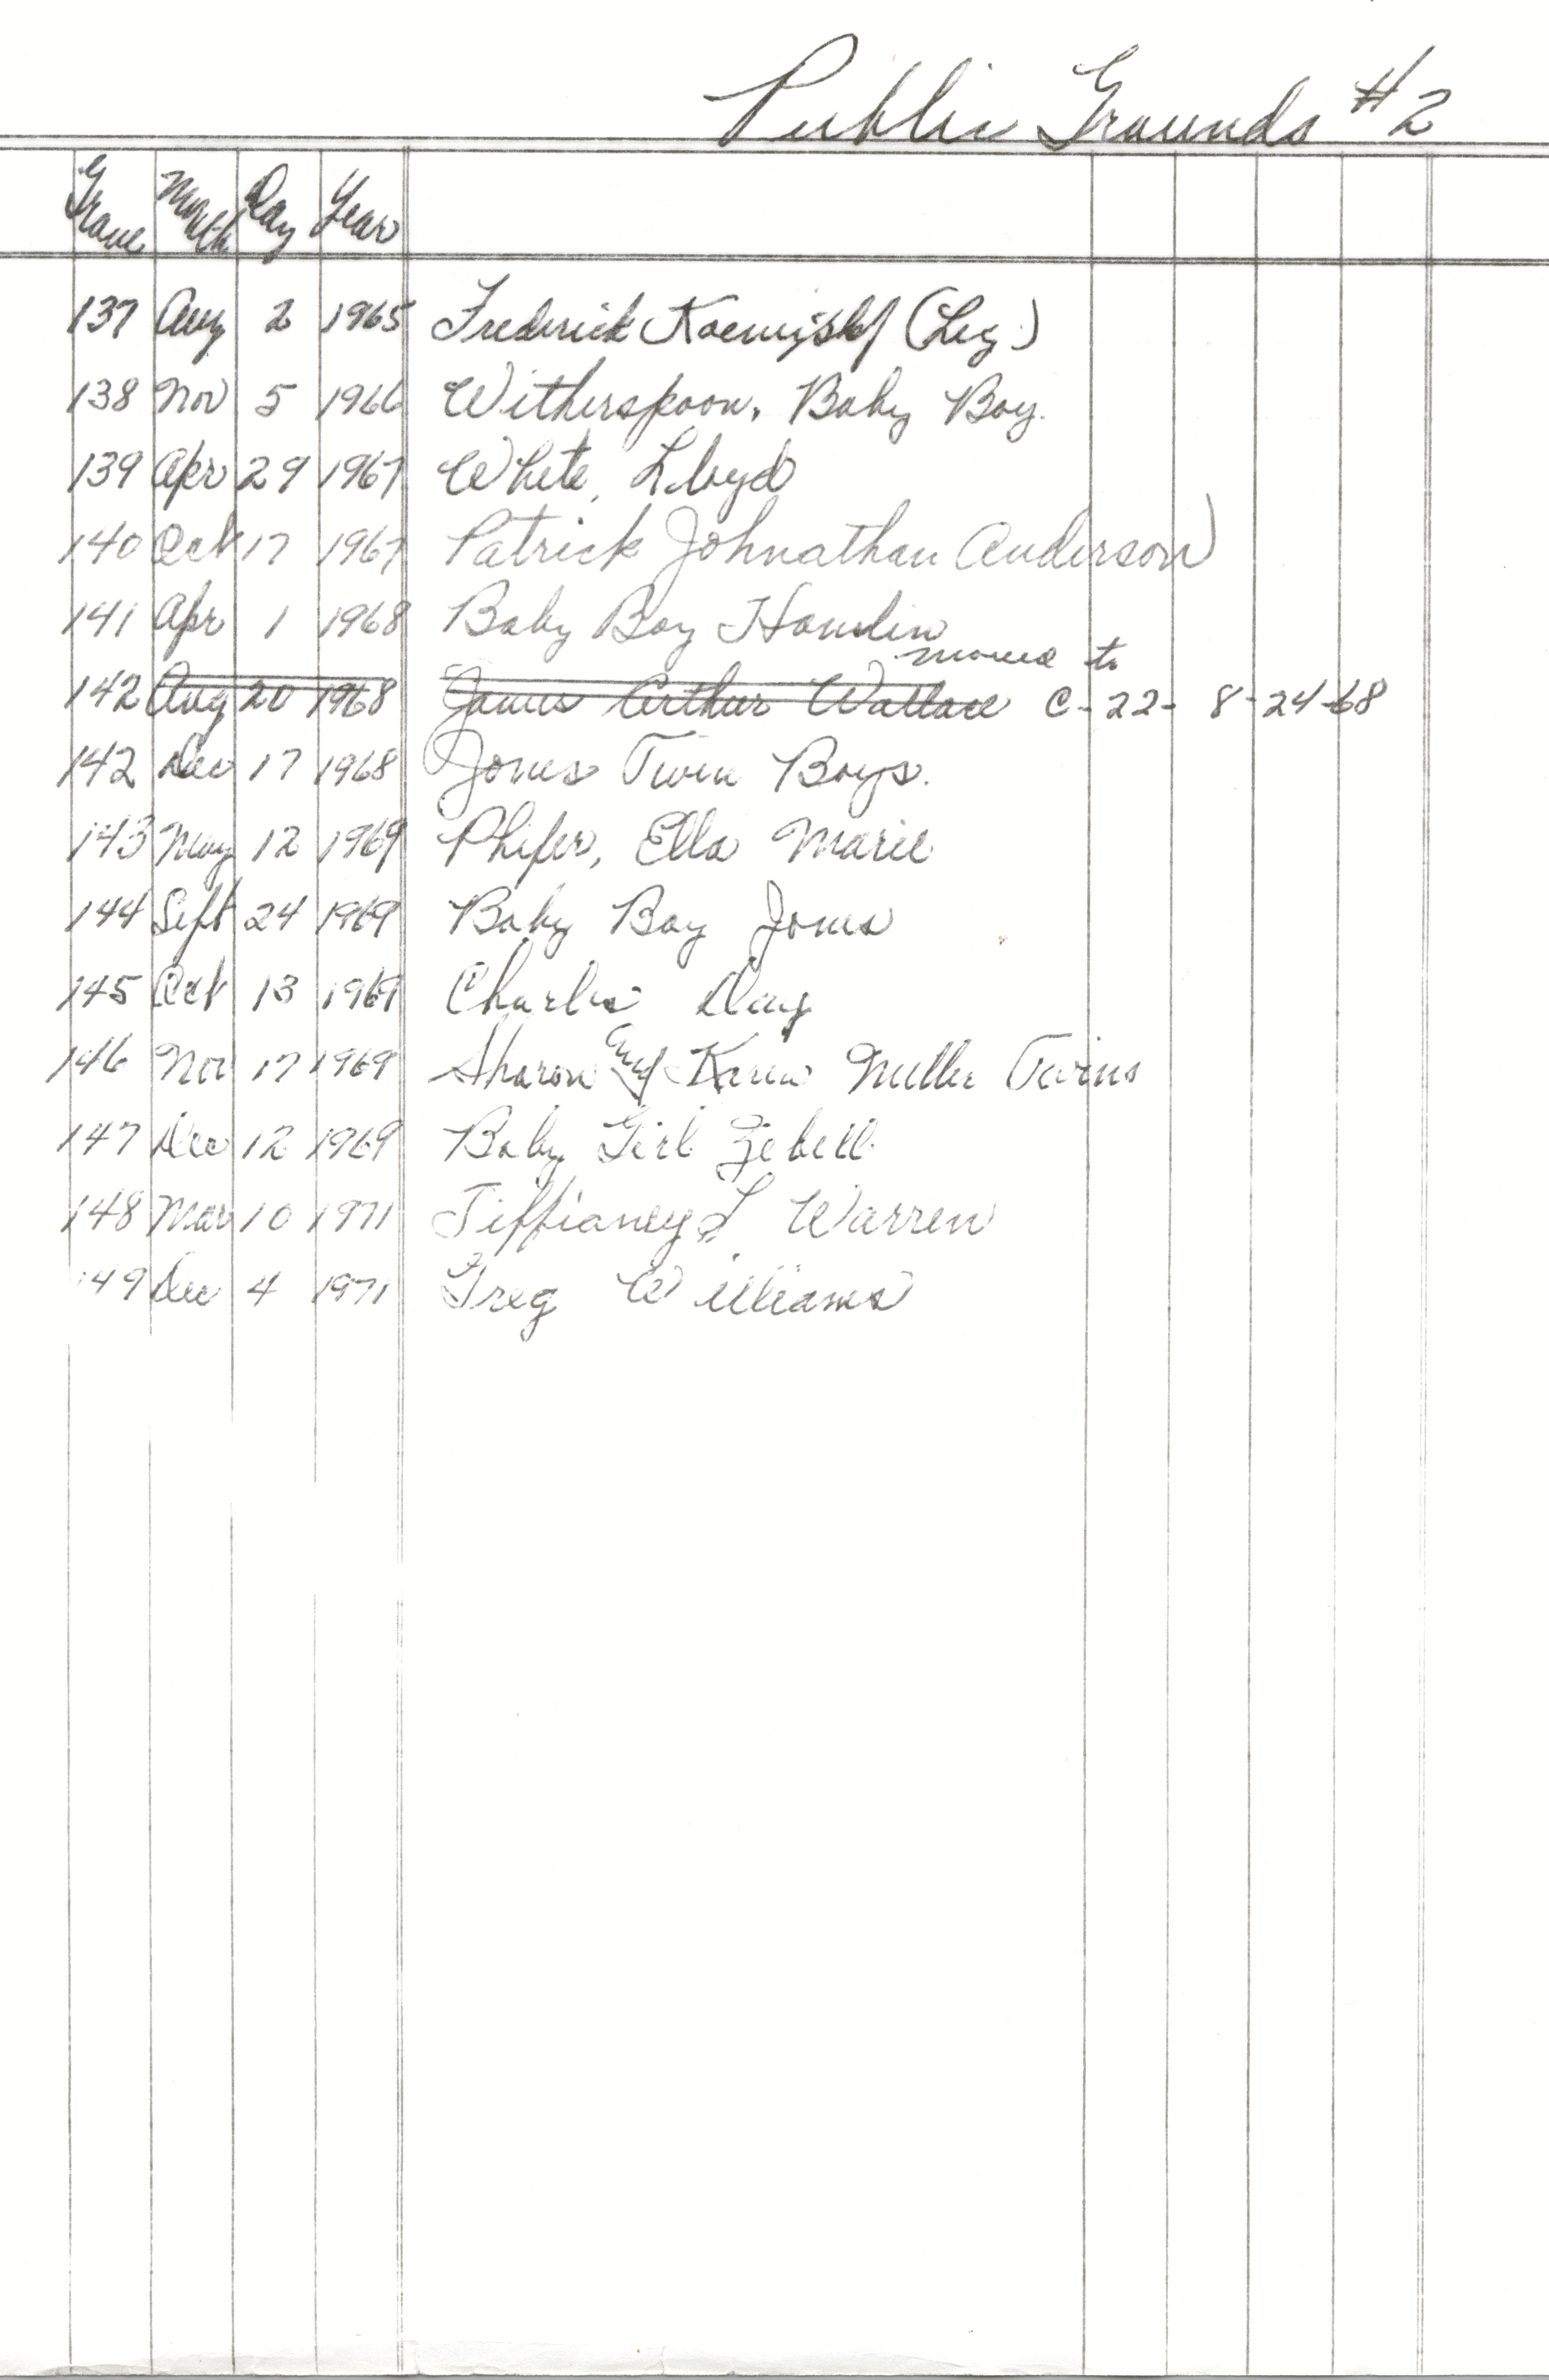 Public Grounds #2
Grave Month Day Year
137 Aug 2 1965 Frederick (Leg)
138 Nov 5 1966 Witherspoon, Baby Boy.
139 Apr 29 1967 White, Lloyd
140 Oct 17 1967 Patrick Johnathan Anderson
141 Apr 1 1968 Baby Boy Hamlin
moved to
142 Aug 20 1968 James Arthur Wallace C-22- 8-24-68
142 Dec 17 1968 Jones Twin Boys.
143 May 12 1969 Phifer, Ella Marie
144 Sept 24 1969 Baby Boy Jones
145 Oct 13 1969 Charlie Day
146 Nov 17 1969 Sharon and Karen Miller Twins
147 Dec 12 1969 Baby Girl Zebell
148 Mar 10 1971 Tiffianey L Warren
149 Dec 4 1971 Greg Williams